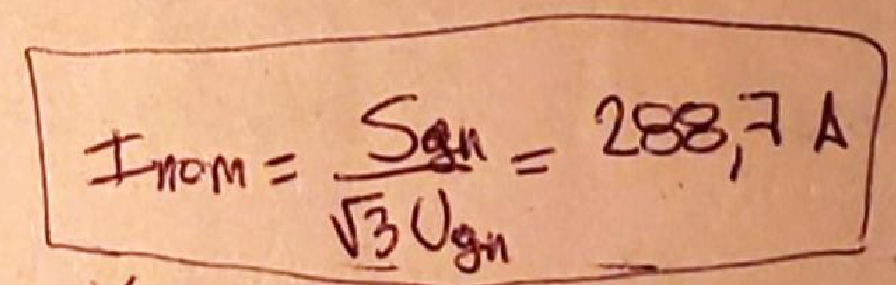 Inom = Sgn / √3 Ugn = 288,7 A